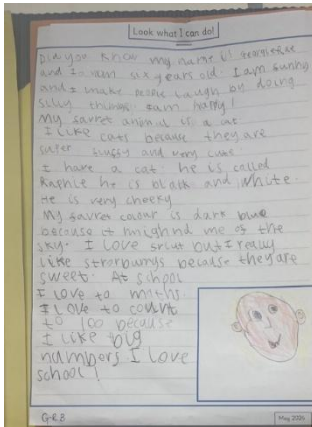 Look what I can do!
Did you know my name is
and I am six years old. I am funny
and I make people laugh by doing
silly things. I am happy!
My favret animal is a cat.
I like cats because they are
super fluffy and very cute.
I have a cat. he is called
he is black and white.
He is very cheeky
My favret colour is dark blue
because it me of the
sky. I love but I really
like because they are
sweet. At school
I love to maths.
I love to count
to 100 because
I like big
numbers I love
school!
May 2026